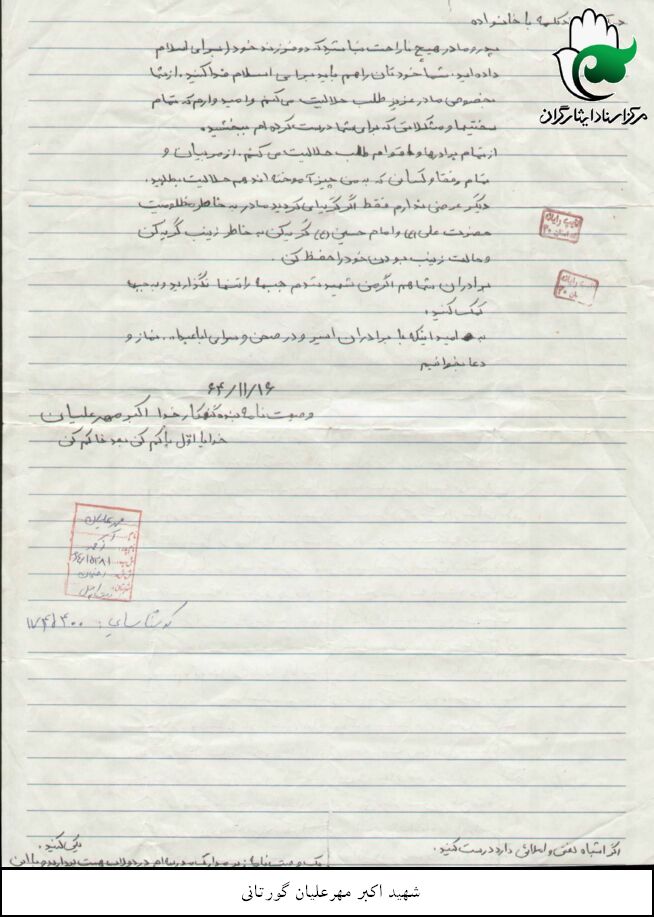 چند کلمه با خانواده
مرکز اسناد ایثارگران
پدر و مادر هیچ ناراحت نباشید که دو فرزند خود را برای اسلام
داده‌اید. شما خودتان را هم باید برای اسلام فدا کنید. از شما
بخصوص مادر عزیز طلب حلالیت می‌کنم و امیدوارم که تمام
سختیها و مشکلاتی که برای شما درست کرده‌ام ببخشید.
از تمام برادرها و اقوام طلب حلالیت می‌کنم. از مربیان و
تمام رفقا و کسانی که به من چیز آموخته‌اند هم حلالیت بطلبید.
دیگر عرضی ندارم فقط اگر گریه‌ای کردید مادر به خاطر مظلومیت
حضرت علی (ع) و امام حسین (ع) گریه کن به خاطر زینب گریه کن
و حالت زینب بودن خود را حفظ کن.
برادران شما هم اگر من شهید شدم جبهه را تنها نگذارید و به جبهه
کمک کنید.
به امید اینکه با برادران اسیر و در صحن و سرای اباعبدالله نماز و
دعا بخوانیم
۶۴/۱۱/۱۶
وصیت نامه بنده گنهکار خدا اکبر مهرعلیان
خدایا اول پاکم کن بعد خاکم کن
مهرعلیان
اکبر
کد شناسایی: ۱۷۴۵۴۰۰
اگر اشتباه لفظی و املائی دارد درست کنید.
شهید اکبر مهرعلیان گورتانی